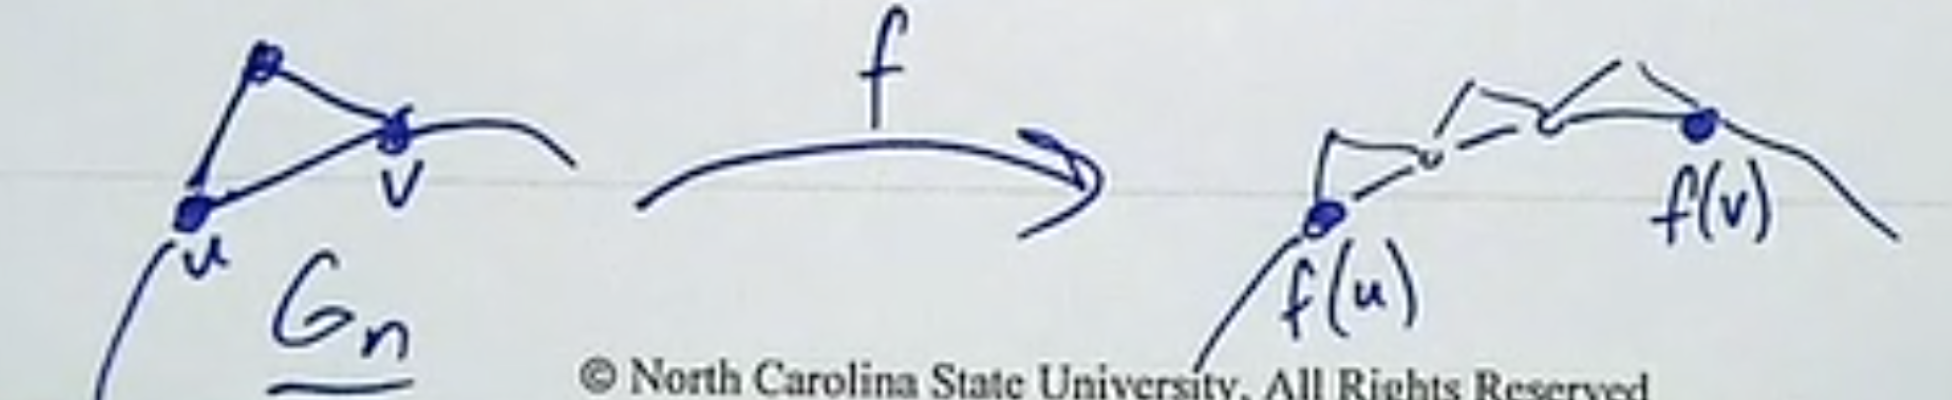 f
v
u
f(v)
f(u)
Gn
© North Carolina State University, All Rights Reserved